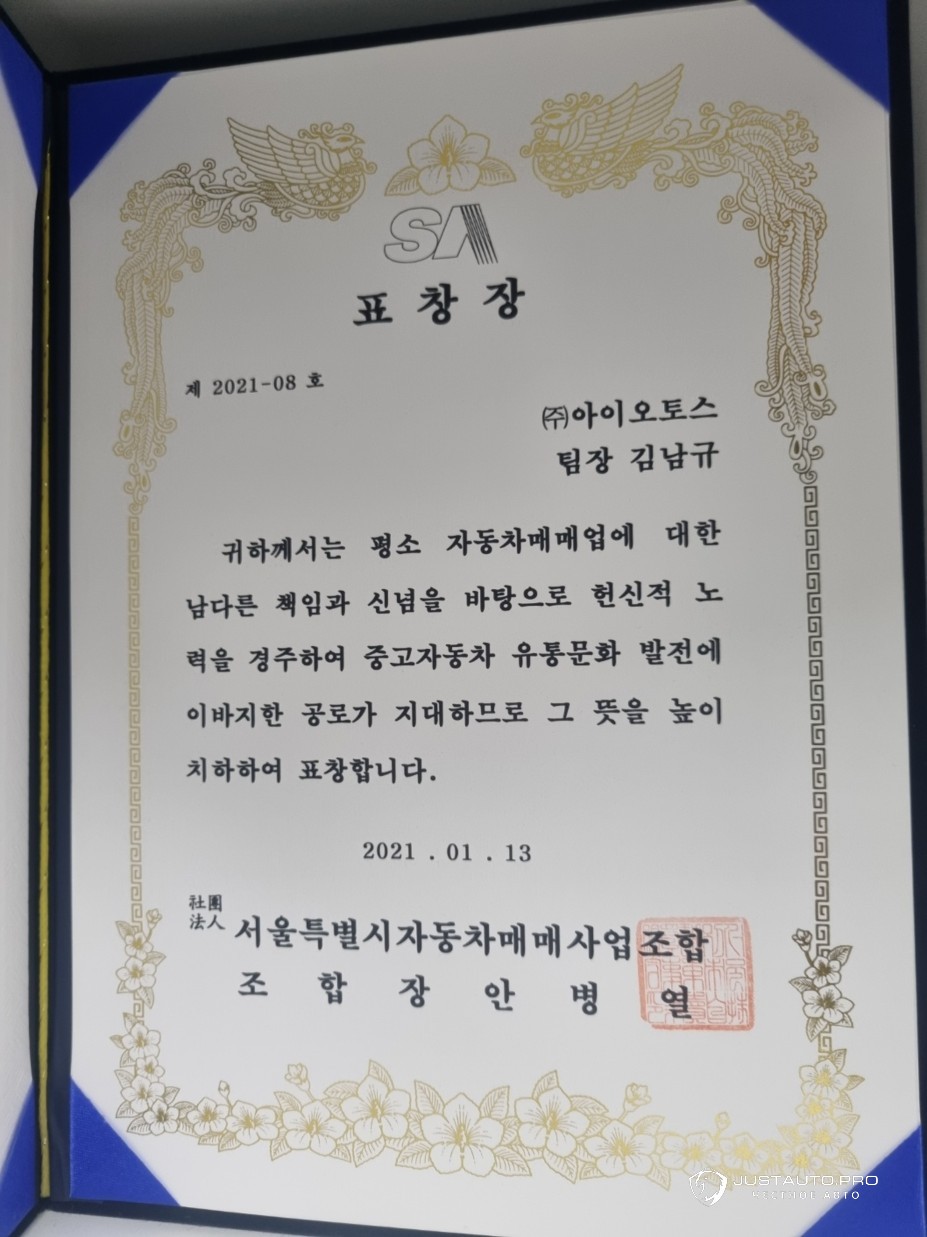 SA
표 창 장
제 2021-08 호
㈜아이오토스
팀장 김남규
귀하께서는 평소 자동차매매업에 대한
남다른 책임과 신념을 바탕으로 헌신적 노
력을 경주하여 중고자동차 유통문화 발전에
이바지한 공로가 지대하므로 그 뜻을 높이
치하하여 표창합니다.
2021 . 01 . 13
社團
法人
서울특별시자동차매매사업조합
조 합 장 안 병 열
JUSTAUTO.PRO
ЧЕСТНОЕ АВТО